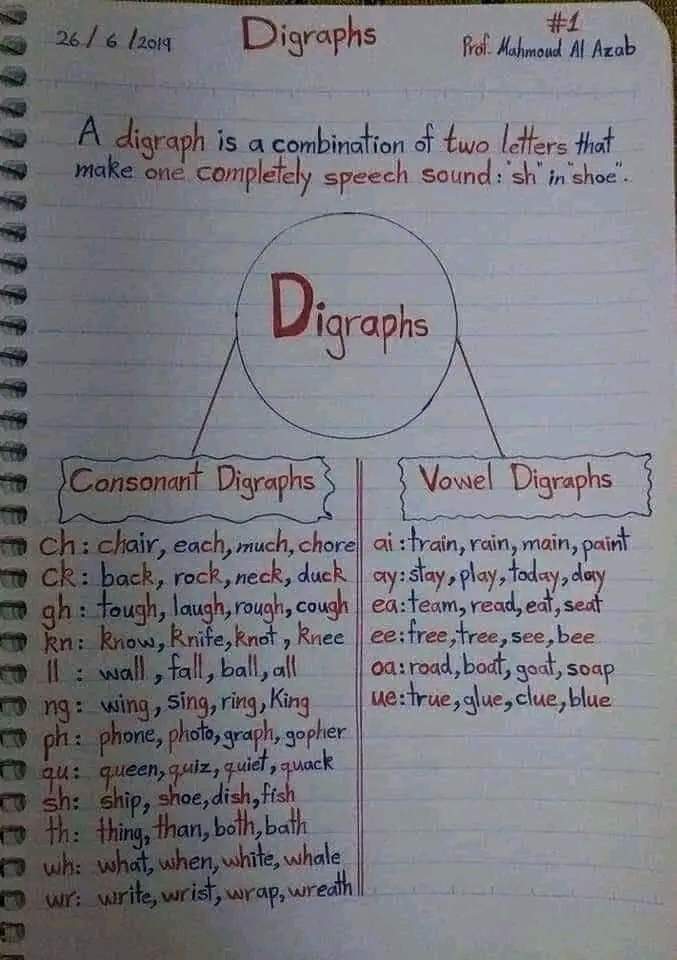 26/6/2019 Digraphs #1
Prof. Mahmoud Al Azab
A digraph is a combination of two letters that
make one completely speech sound: "sh" in "shoe".
Digraphs
Consonant Digraphs
ch: chair, each, much, chore
ck: back, rock, neck, duck
gh: tough, laugh, rough, cough
kn: know, knife, knot, knee
ll: wall, fall, ball, all
ng: wing, sing, ring, King
ph: phone, photo, graph, gopher
qu: queen, quiz, quiet, quack
sh: ship, shoe, dish, fish
th: thing, than, both, bath
wh: what, when, white, whale
wr: write, wrist, wrap, wreath
Vowel Digraphs
ai: train, rain, main, paint
ay: stay, play, today, day
ea: team, read, eat, seat
ee: free, tree, see, bee
oa: road, boat, goat, soap
ue: true, glue, clue, blue